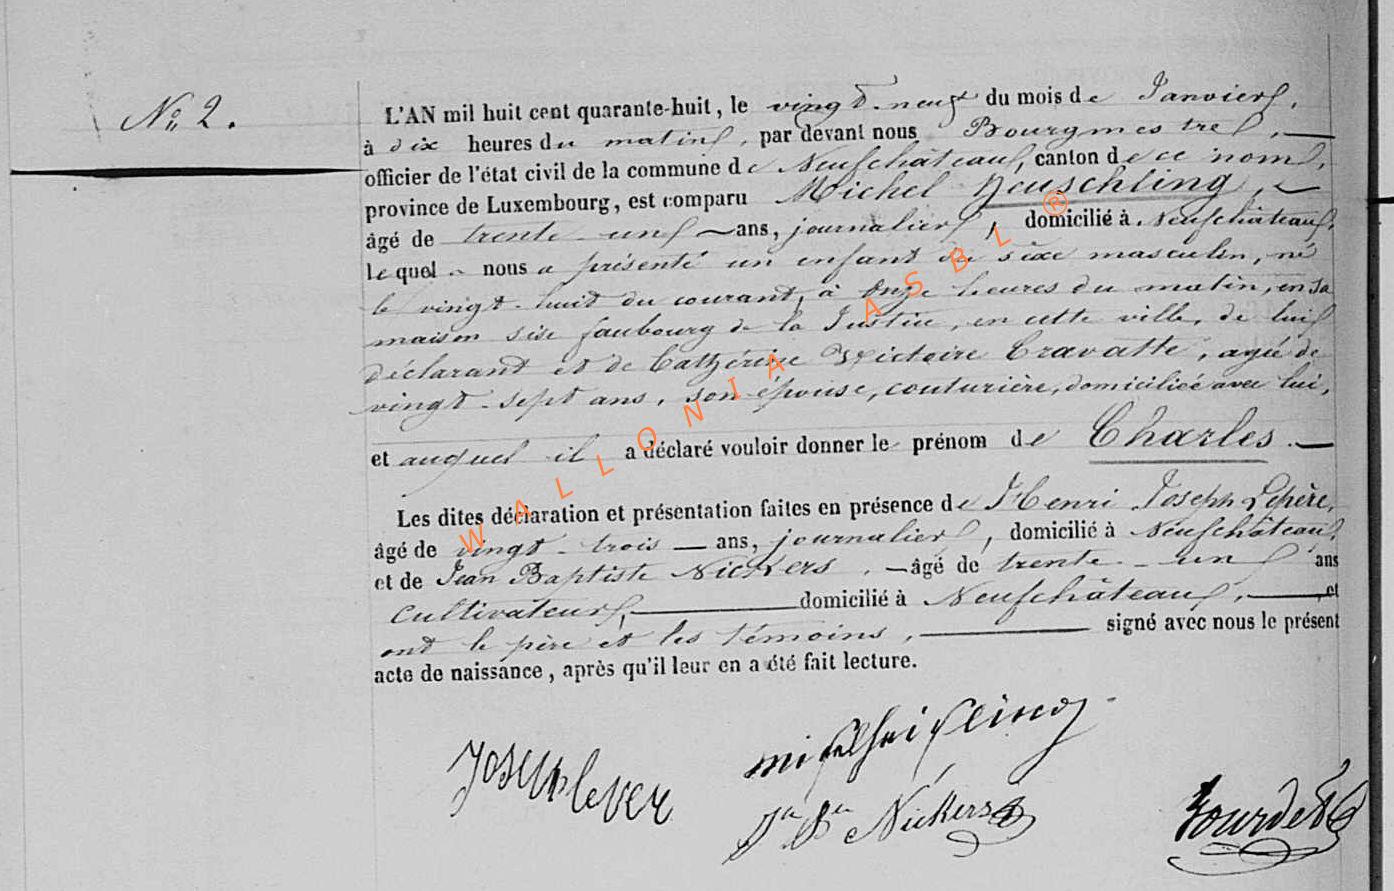 N° 2.
L'AN mil huit cent quarante-huit, le vingt-neuf du mois de Janvier,
à dix heures du matin, par devant nous Bourgmestre,
officier de l'état civil de la commune de Neufchâteau, canton de ce nom,
province de Luxembourg, est comparu Michel Heuschling,
âgé de trente un ans, journalier, domicilié à Neufchâteau,
lequel nous a présenté un enfant du sèxe masculin, né
le vingt-huit du courant, à onze heures du matin, en sa
maison sise faubourg de la Justice, en cette ville, de lui
déclarant et de Cathérine Victoire Cravatte, agée de
vingt-sept ans, son épouse, couturière, domiciliée avec lui,
et auquel il a déclaré vouloir donner le prénom de Charles.
Les dites déclaration et présentation faites en présence de Henri Joseph Lepère,
âgé de vingt-trois ans, journalier, domicilié à Neufchâteau,
et de Jean Baptiste Nickers, âgé de trente-un ans
cultivateur, domicilié à Neufchâteau, et
ont le père et les témoins, signé avec nous le présent
acte de naissance, après qu'il leur en a été fait lecture.
Nickers
WALLONIA ASBL ®